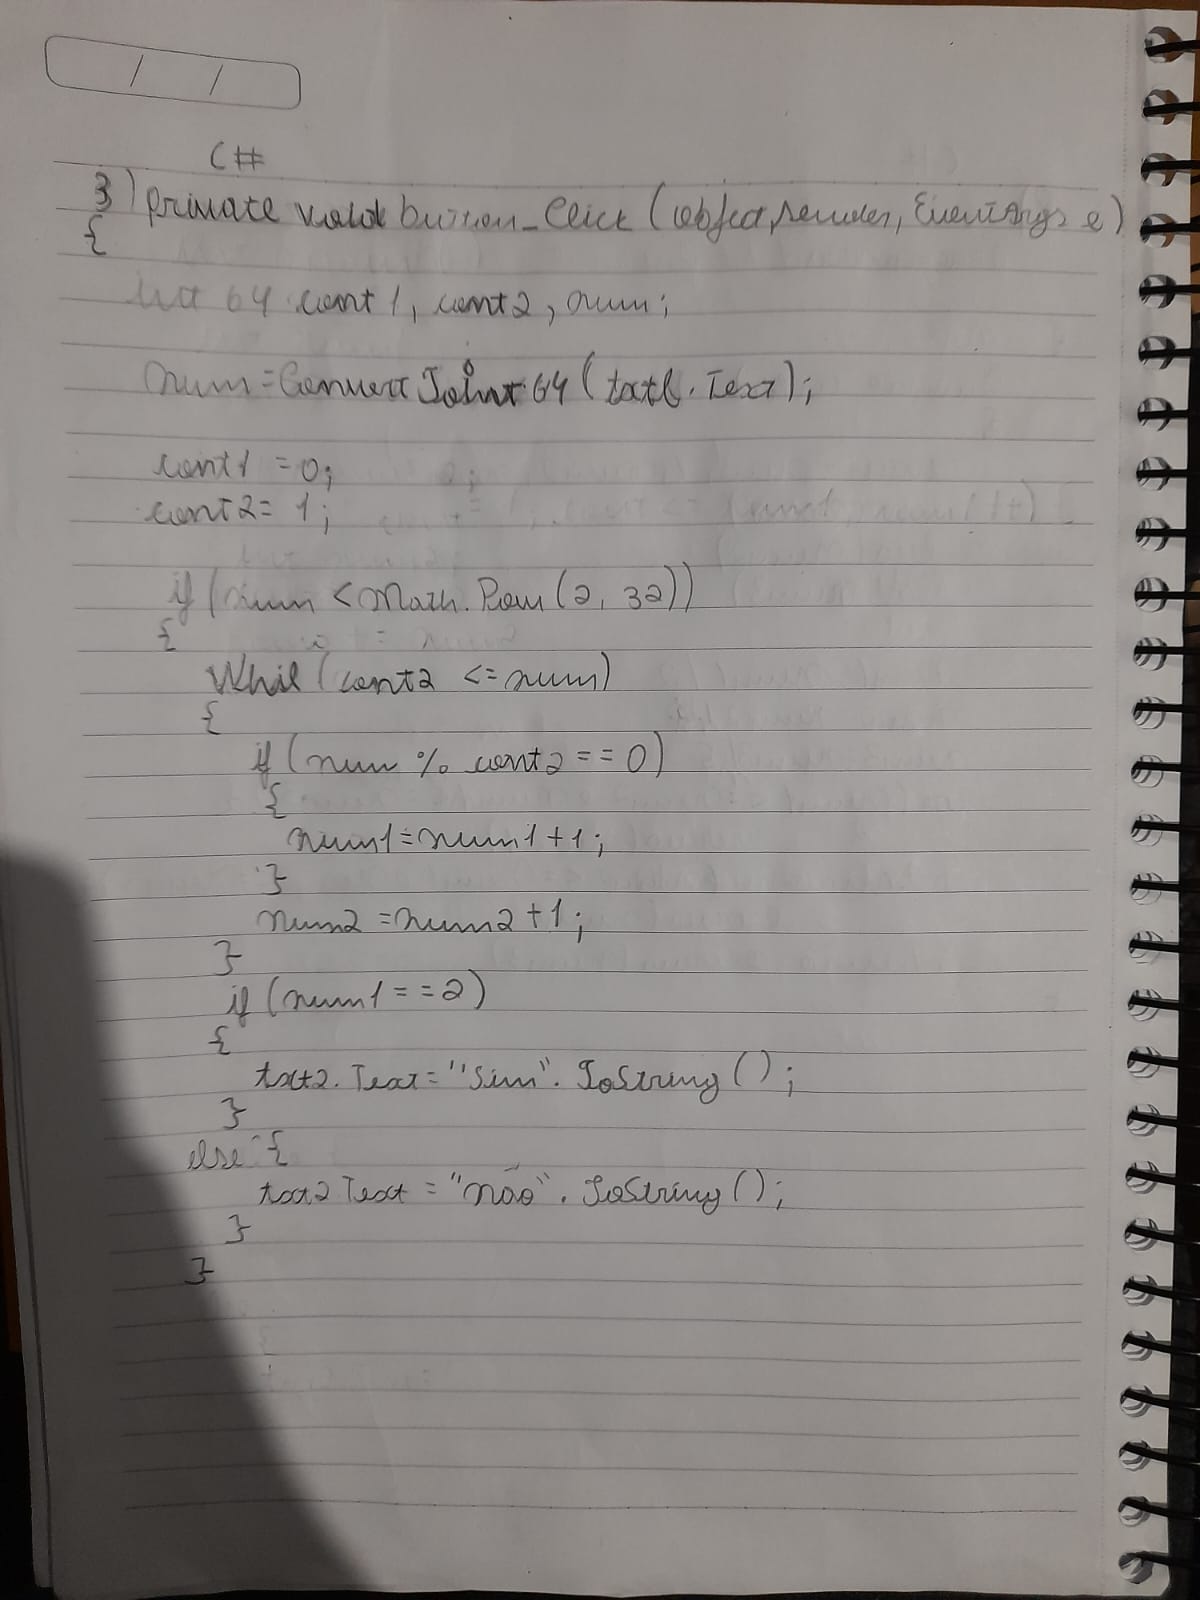 / /
C#
3) private void button_Click (object sender, EventArgs e)
{
Int 64 cont1, cont2, num;
num = Convert ToInt 64 (txt1. Text);
cont1 = 0;
cont2 = 1;
if (num < Math. Pow (2, 32))
{
Whil (cont2 <= num)
{
if (num % cont2 == 0)
{
num1 = num1 + 1;
}
num2 = num2 + 1;
}
if (num1 == 2)
{
txt2. Text = "Sim". ToString ();
}
else {
txt2 Text = "não". ToString ();
}
}